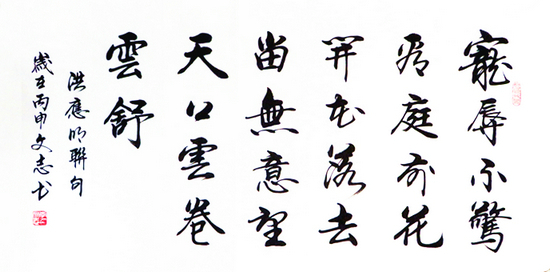 寵辱不驚
看庭前花
開花落去
留無意望
天上雲卷
雲舒
洪應明聯句
歲在丙申文志书